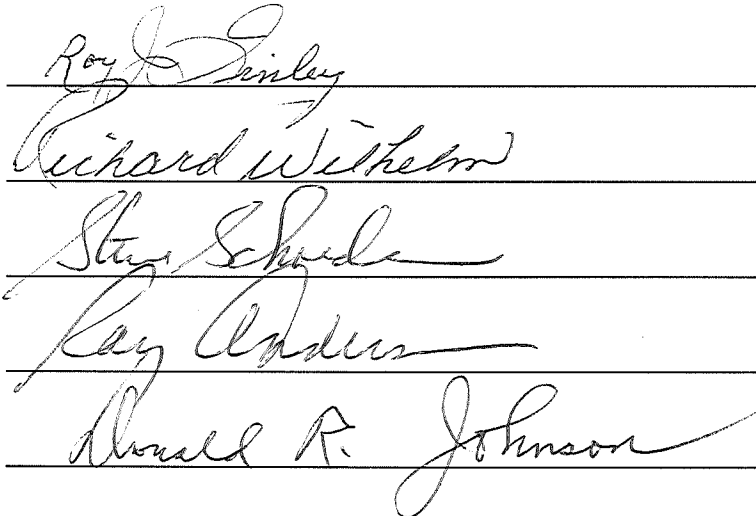 Roy J. Finley
Richard Wilhelm
Steve Schneider
Ray Anderson
Donald R. Johnson